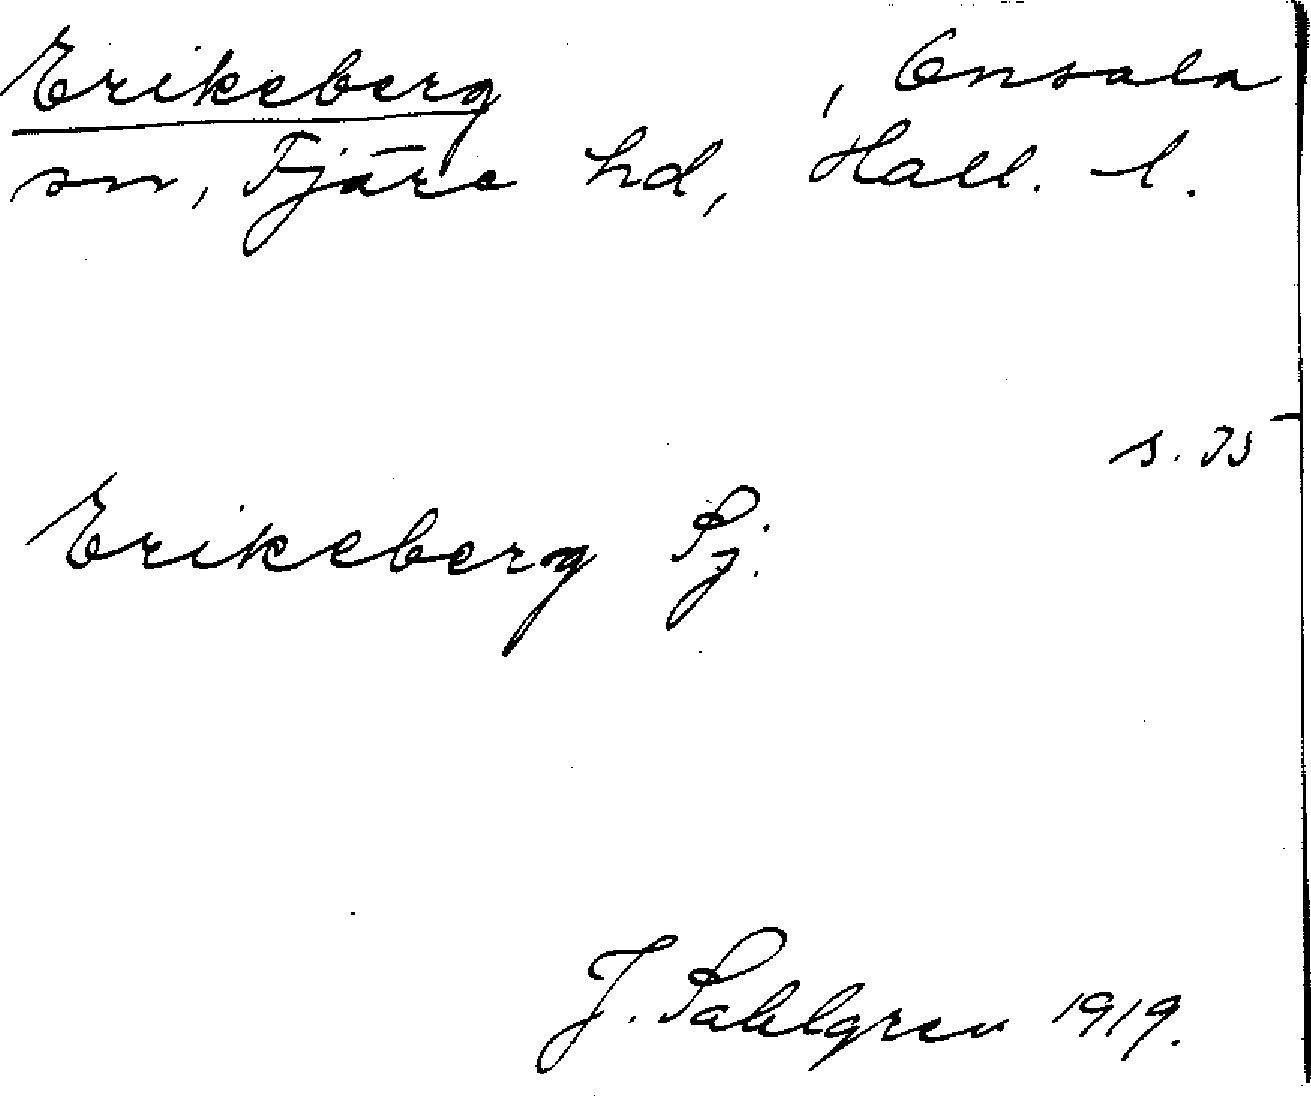 Erikeberg , Onsala
sn, Fjäre hd, Hall. l.
s.
Erikeberg Sj.
J. Sahlgren 1919.